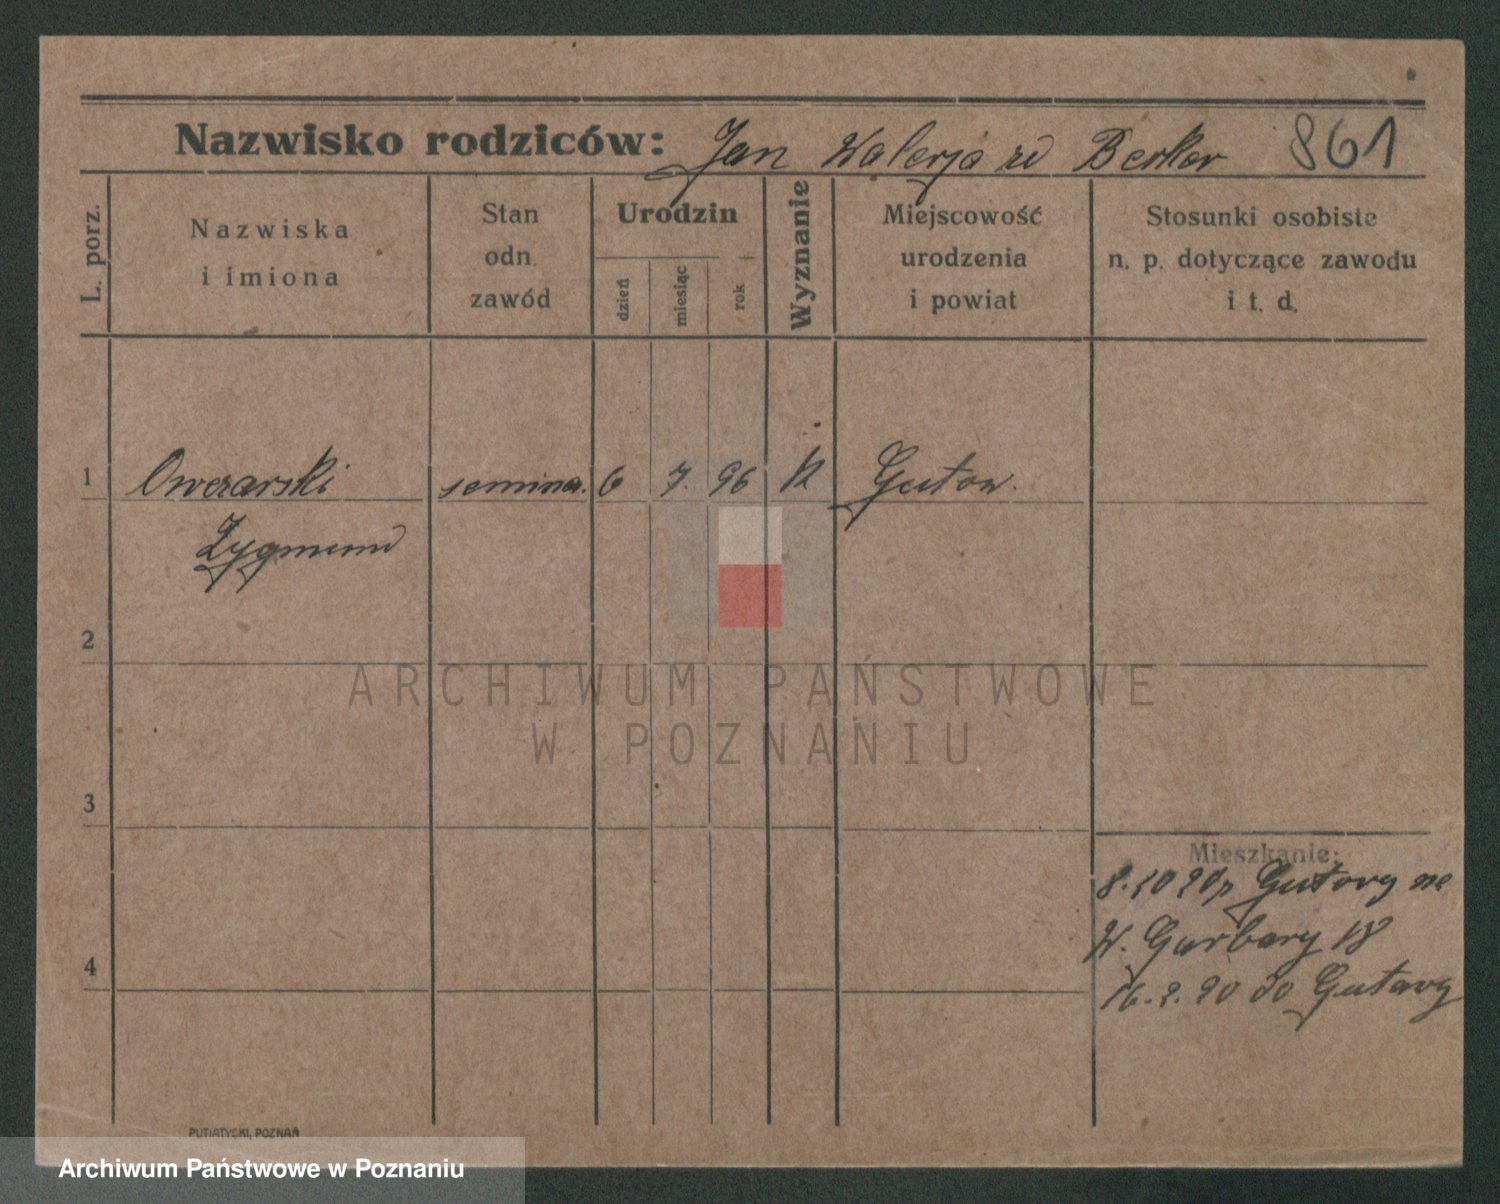 Nazwisko rodziców: Jan Walerja zd Berker 861
L. porz.
Nazwiska
i imiona
Stan
odn.
zawód
Urodzin
dzień
miesiąc
rok
Wyznanie
Miejscowość
urodzenia
i powiat
Stosunki osobiste
n. p. dotyczące zawodu
i t. d.
1 Owczarski semina. 6 7. 96 K Gutow.
Zygmund
2
ARCHIWUM PAŃSTWOWE
W POZNANIU
3
Mieszkanie:
8.10 20 Gutowy
W. Garbary 18
16.2.20 do Gutowy
4
PUTIATYCKI, POZNAŃ
Archiwum Państwowe w Poznaniu